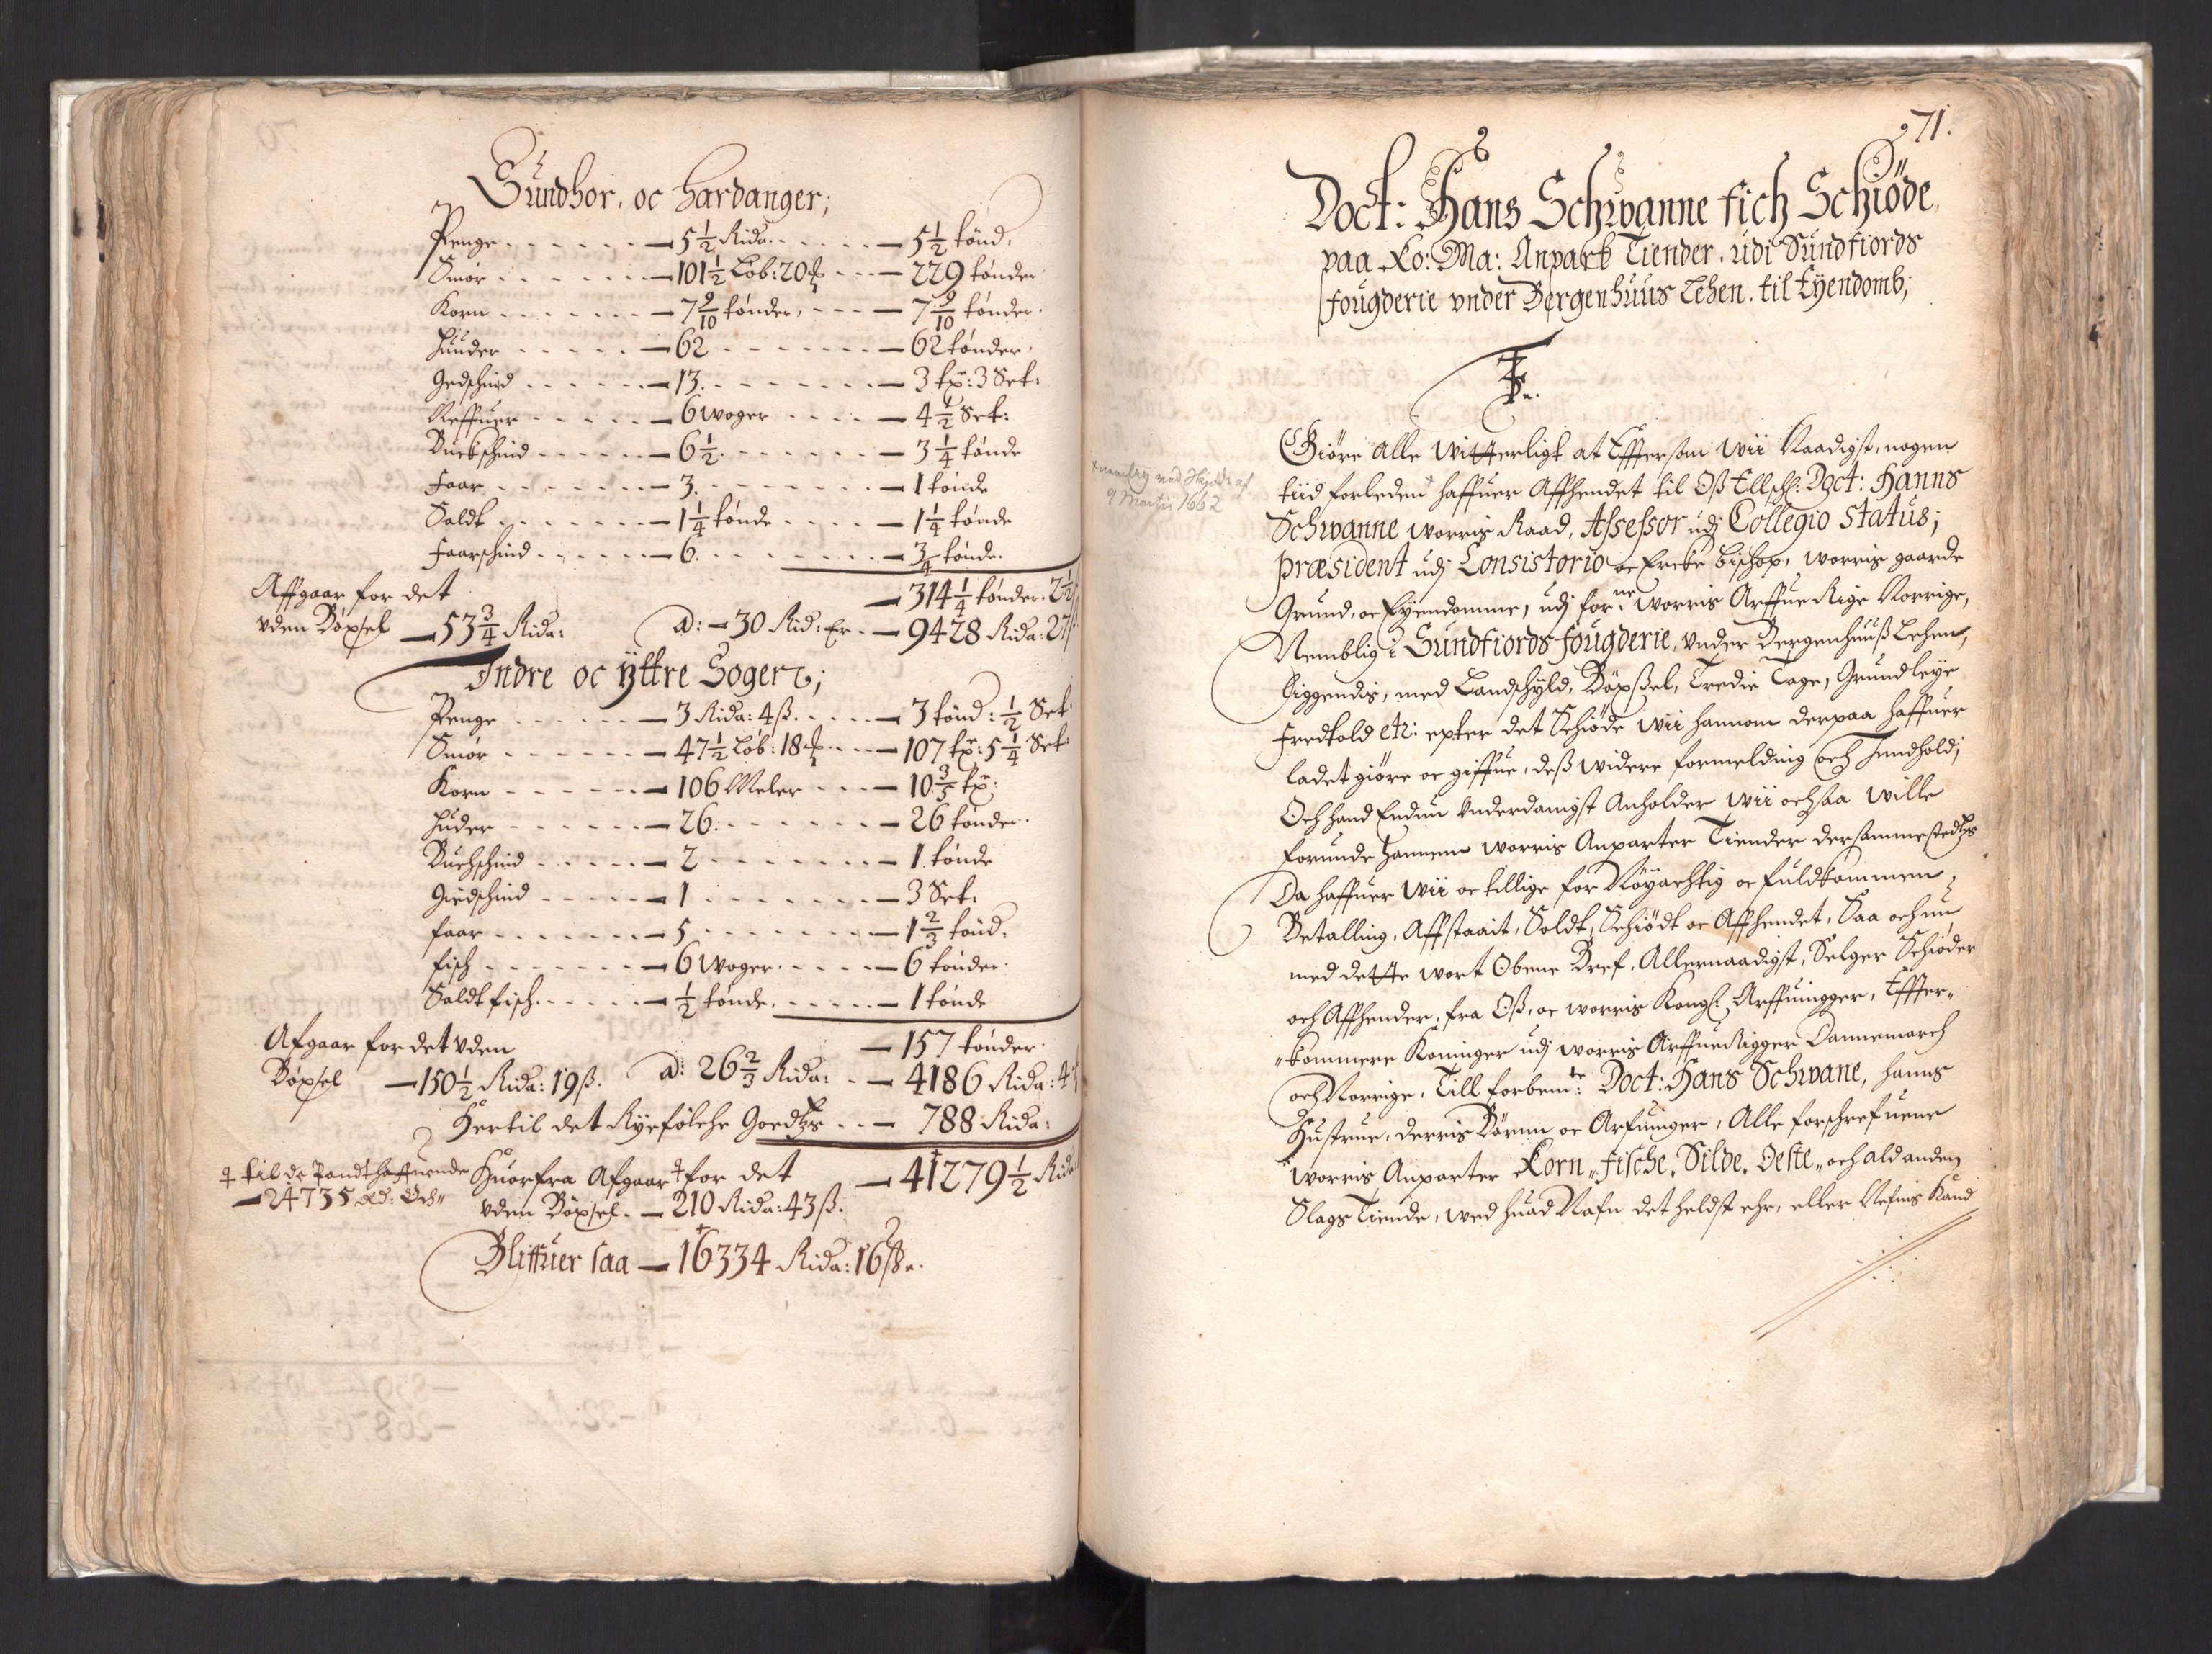 Sundhor, oc Hardanger;
Penge - - - - - - 5 1/2 Rida: - - - - - 5 1/2 tønd:
Smør - - - - - - 101 1/2 Løb: 20 ℔ - - - 229 tønder
Korn - - - - - - 7 9/10 tønder, - - - 7 9/10 tønder.
Huuder - - - - - 62 - - - - - - 62 tønder.
Gedschind - - - - - 13. - - - - - - 3 tr: 3 Set:
Neffuer - - - - - 6 woger - - - - 4 1/2 Set:
Buckschind - - - - - 6 1/2. - - - - - - 3 1/4 tønde
Faar - - - - - - 3. - - - - - - 1 tønde
Saldt - - - - - - 1 1/4 tønde - - - - 1 1/4 tønde
Faarschind - - - - - 6. - - - - - - 3/4 tønde.
Affgaar for det
314 1/4 tønder.
vden Böxsel 53 3/4 Rida: a: 30 Rid: Er. 9428 Rida: 27
Indre oc Yttre Sogen;
Penge - - - - - - 3 Rida: 4 ß. - - - - 3 tønd: 1/2 Set:
Smør - - - - - - 47 1/2 Løb: 18 ℔ - - - 107 tr: 5 1/4 Set
Korn - - - - - - 106 Meler - - - 10 3/5 tr:
Huder - - - - - - 26. - - - - - - 26 tønder.
Buchschind - - - - - 2 - - - - - - 1 tønde
Giedschind - - - - - 1 - - - - - - 3 Set:
faar - - - - - - 5 - - - - - - 1 2/3 tønd:
fisch - - - - - - 6 Woger. - - - - 6 tønder.
Saldt fisch - - - - - 1/2 tønde. - - - - 1 tønde
Afgaar for det vden
157 tønder.
Böxsel 150 1/2 Rida: 19 ß. a: 26 2/3 Rida: - - 4186 Rida: 4
Hertil det Ryefölche Goedtzs - - 788 Rida:
‡ til de Pandthaffuende Huorfra Afgaar ‡ for det 41279 1/2 Rida
24735 Rd: Och
vden Böxsel. 210 Rida: 43 ß.
Bliffuer saa 16334 Rida: 16 ß.
71.
Doct: Hans Schwanne fich Schiöde
paa Ko: Ma: Anpart Tiender, udi Sundfiords
fougderie vnder Bergenhuus Lehen, til Eyendomb;
Giöre alle Witterligt at Effter som Wii Naadigst, nogen
tiid forleden haffuer Affhendet til Oß Elschl: Doct: Hanns
x nemlig ved Skjøde af
9 Martii 1662
Schwanne worris Raad, Assessor udj Collegio Status;
Præsident udj Consistorio oc Ercke Bischop, worris gaarde
Grund, oc Eyendomme, udj forne: worris Arffue Rige Norrige,
Nemblig i Sundfiords fougderie, vnder Bergenhuuß Lehen,
liggendis, med Landschyld, Böxßel, Tredie Tage, Grundleye
Fredtold etc: epter det Schiöde Wii hannom derpaa haffuer
ladet giöre oc giffue, deß widere formelding och Inndhold;
Och hand Endnu Vnderdanigst Anholder Wii ochsaa wille
forunde hannem worris Anparter Tiender dersammestedtzs
Da haffuer Wii oc tillige for Nöyachtig oc fuldkommen
Betalling, Affstaait, Soldt, Schiödt oc Affhendet, Saa och nu
med dette wort Obene Bref, Allernaadigst, Selger Schiöder
och Affhender, fra Oß, oc worris Kongl: Arffuingger, Effter,,
,,kommere Koninger udj worris Arffue Rigger Dannemarch
och Norrige, Till forbemte: Doct: Hans Schwane, hanns
Hustrue, derris Börnn oc Arfuinger, Alle forschrefuene
worris Anparter Korn,, fische, Silde, Oeste,, och ald anden
Slags Tiende, wed huad Nafn det heldst ehr, eller Nefnis Kand